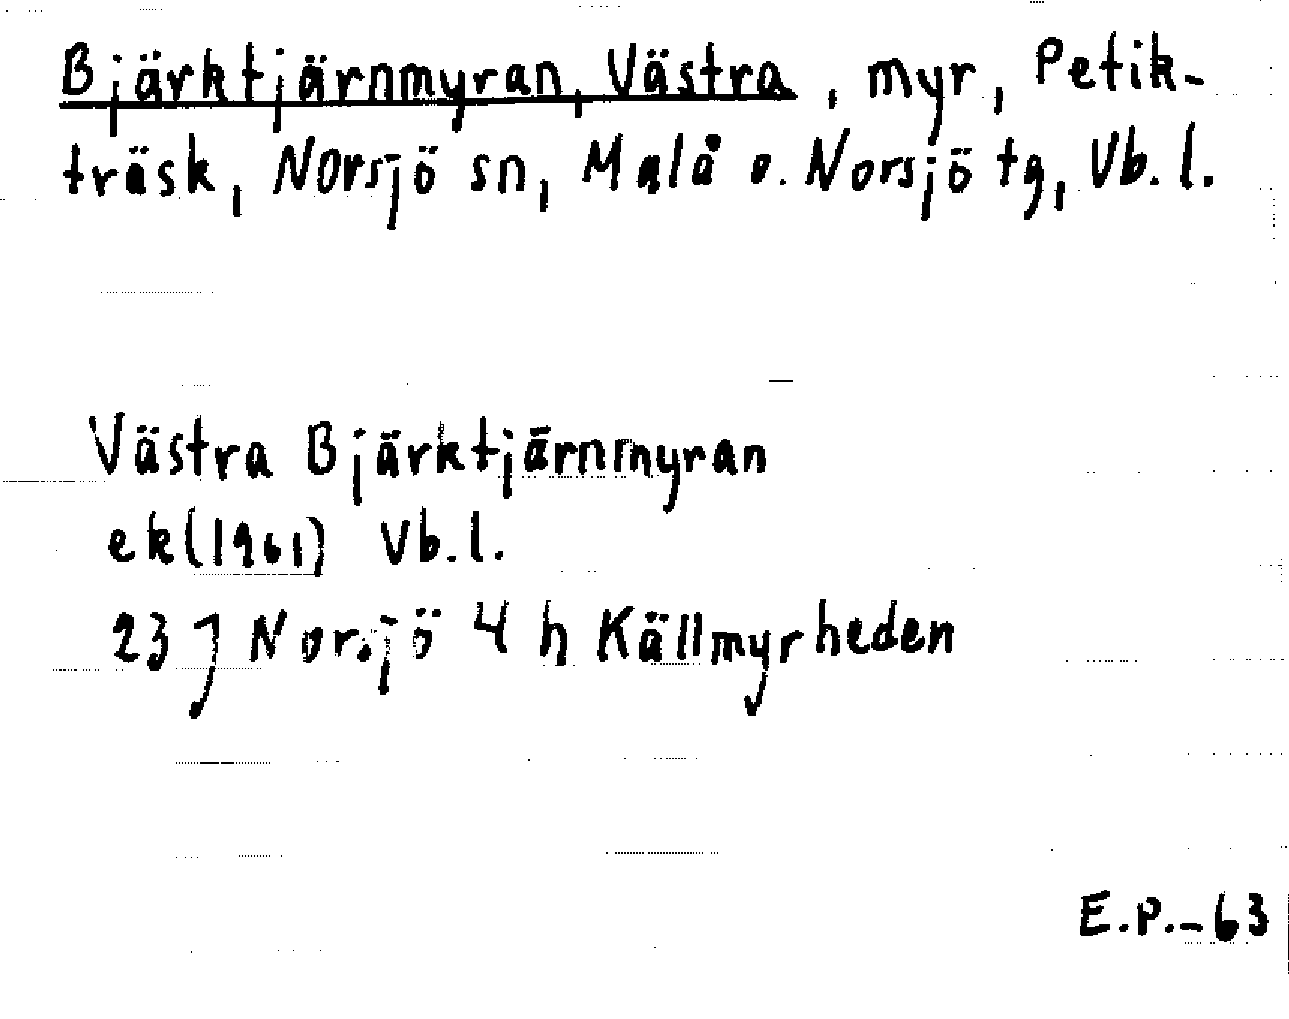 Bjärktjärnmyran, Västra, myr, Petik-
träsk, Norsjö sn, Malå o. Norsjö tg, Vb. l.
Västra Bjärktjärnmyran
ek (1961) Vb. l.
23 J Norsjö 4 h Källmyrheden
E.P.-63